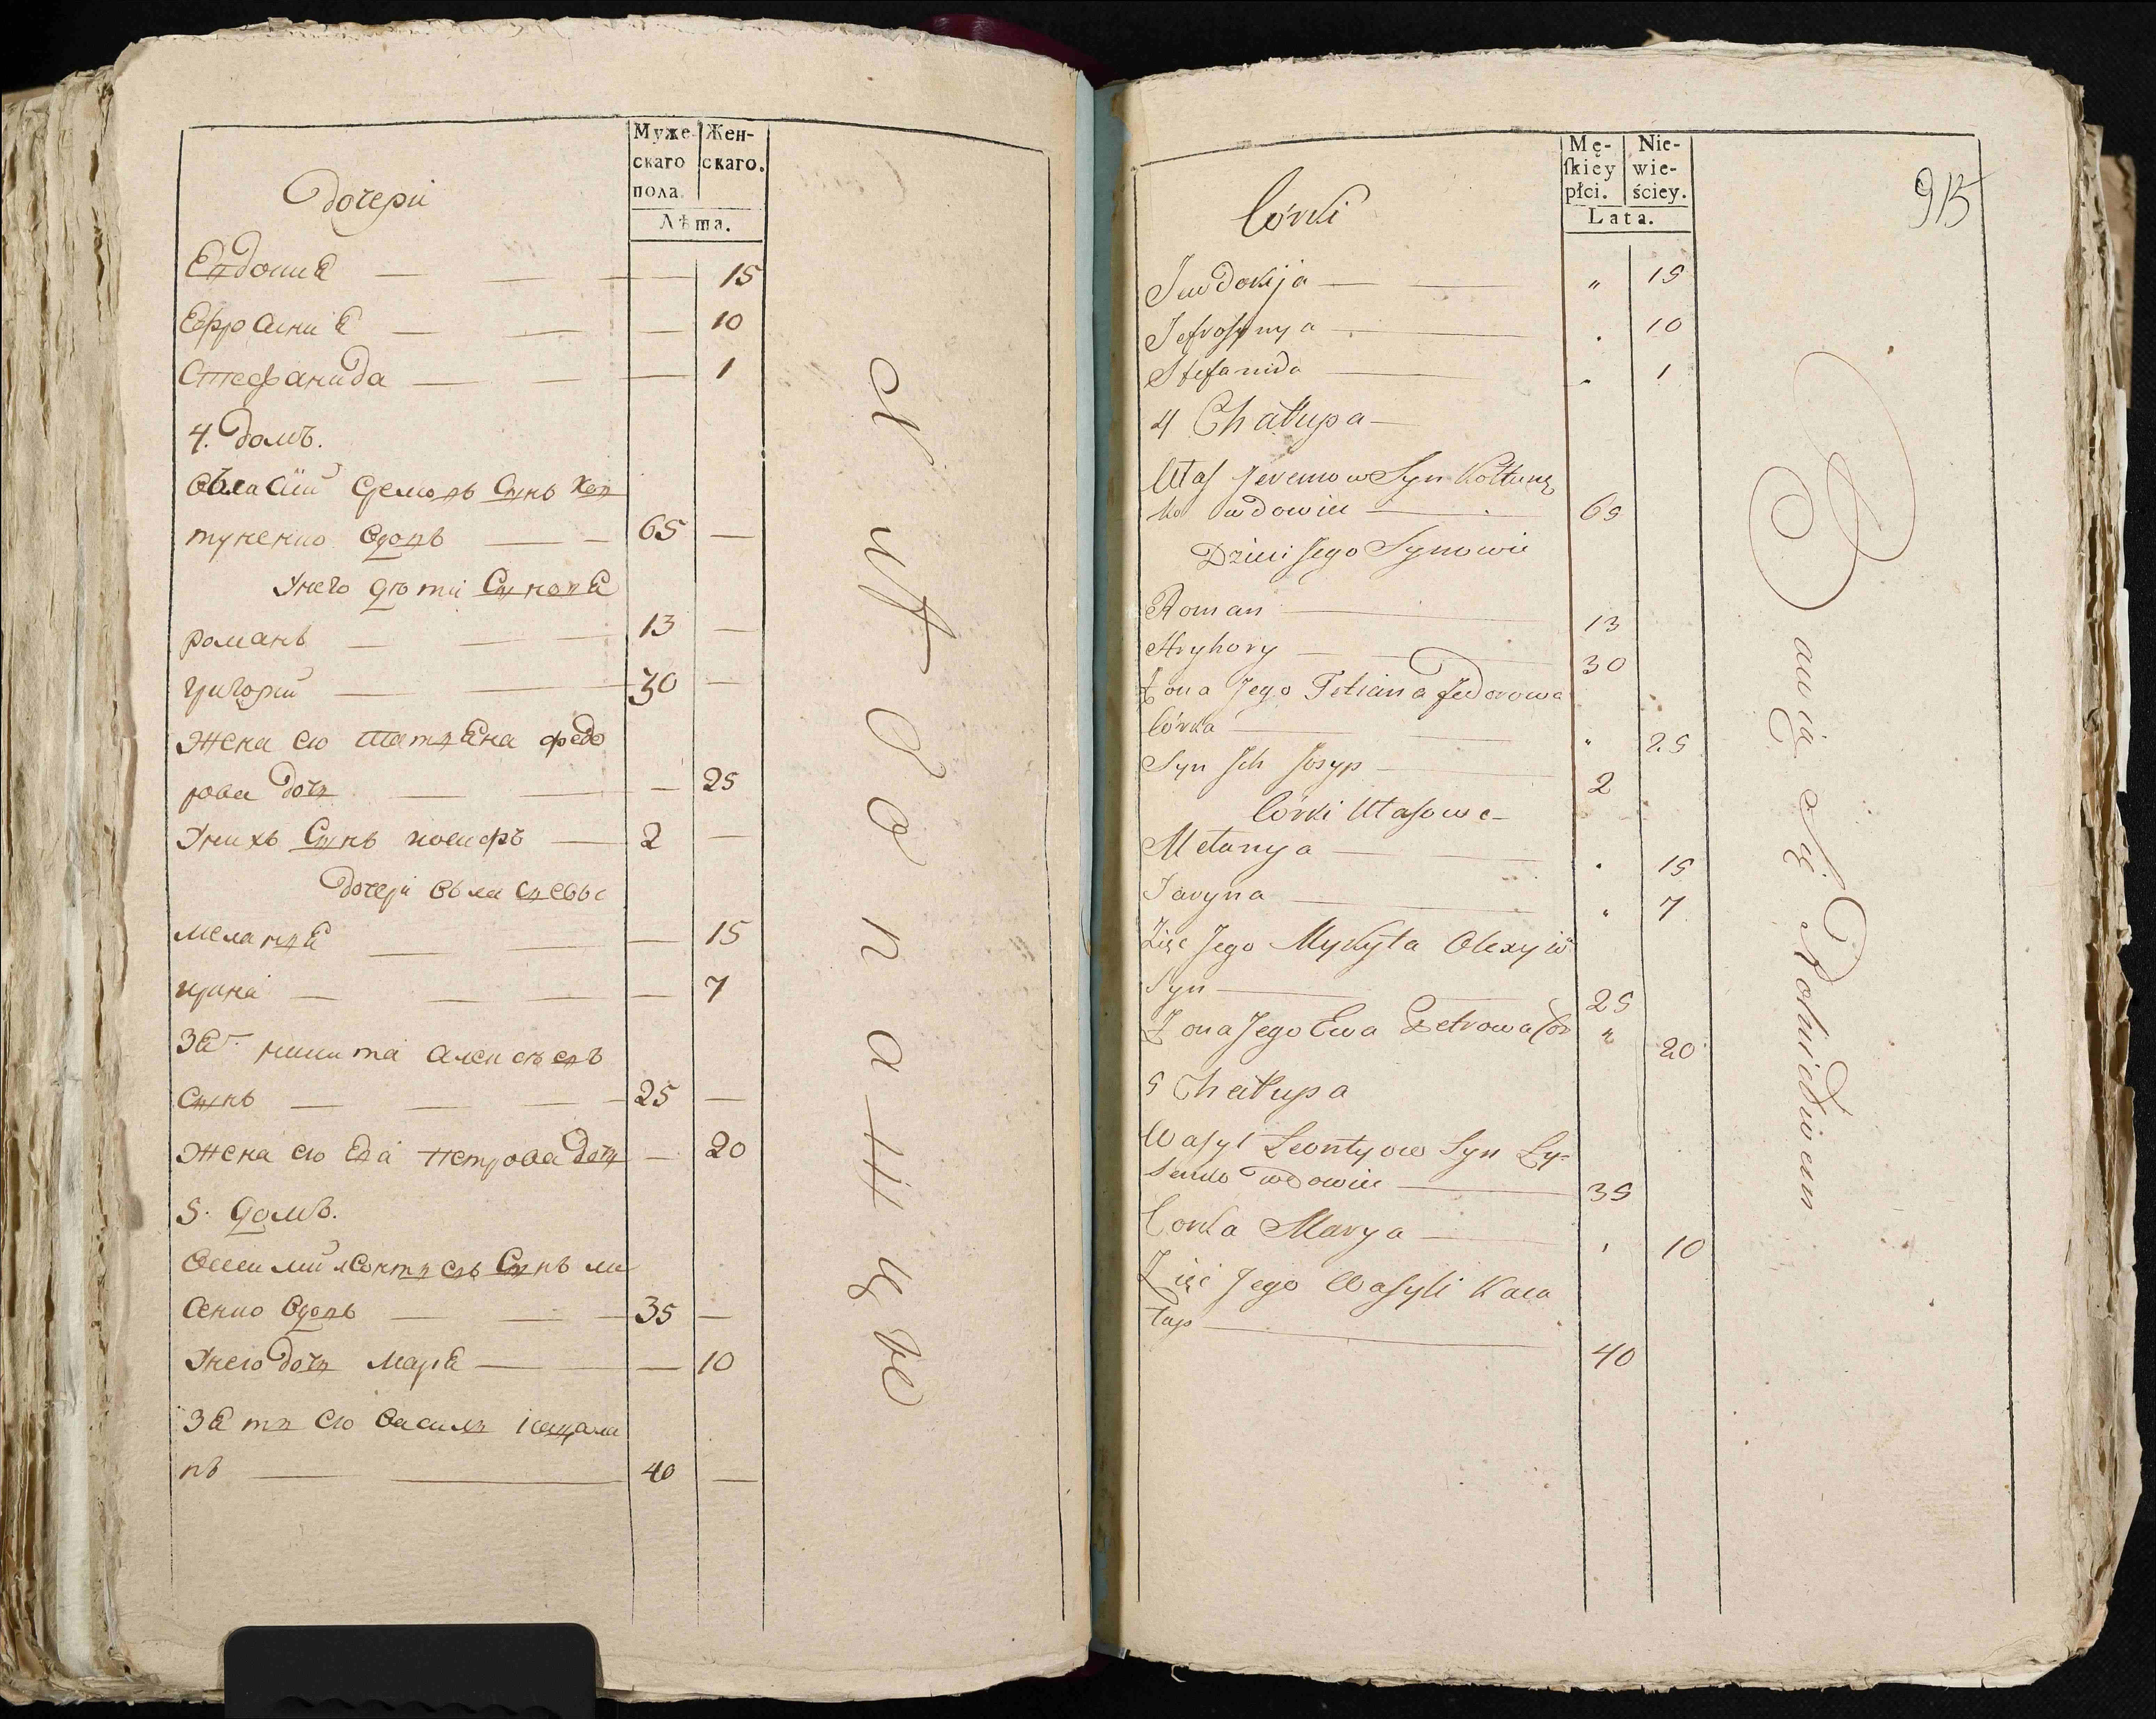 Муже-
скаго
пола.
Жен-
скаго.
Лѣта.
Дочери
Евдокиѣ — 15
Ефросиниѣ — 10
Стефанида — 1
4. Домъ.
Власiй Еремовъ Сынъ Кол
туненко вдовъ 65 —
У него дѣти Сыновѣ
романъ 13 —
григорий 30 —
Жена его татиѣна федо
рова дочь — 25
У нихъ Сынъ иосифъ 2 —
Дочери
меланиѣ — 15
ирина — 7
Зѣть никита алексѣевъ
Сынъ 25 —
Жена его Ева петрова дочь — 20
5. домъ.
василий леонтиевъ Сынъ ли
сенко вдовъ 35 —
У него дочь мариѣ — 10
Зѣть его василь кацала
пъ 40 —
Mę-
skiey
płci.
Nie-
wie-
ściey.
Lata.
915
Córki
Jewdokija " 15
Jefrosynya . 10
Stefanida . 1
4 Chałupa
Ułas Jeremow Syn Kołtunę
ko wdowiec 65
Dzieci Jego Synowie
Roman 13
Hryhory 30
Żona Jego Tetiana Fedorowa
Córka " 25
Syn Ich Josyp 2
Córki Ułasowe
Mełanya . 15
Jaryna " 7
Zięć Jego Mykyta Olexyiw
Syn 25
Żona Jego Ewa Petrowa Cor " 20
5 Chałupa
Wasyl Leontyow Syn Ly=
senko wdowiec 35
Corka Marya , 10
Zięć Jego Wasyli Kaca
łap 40